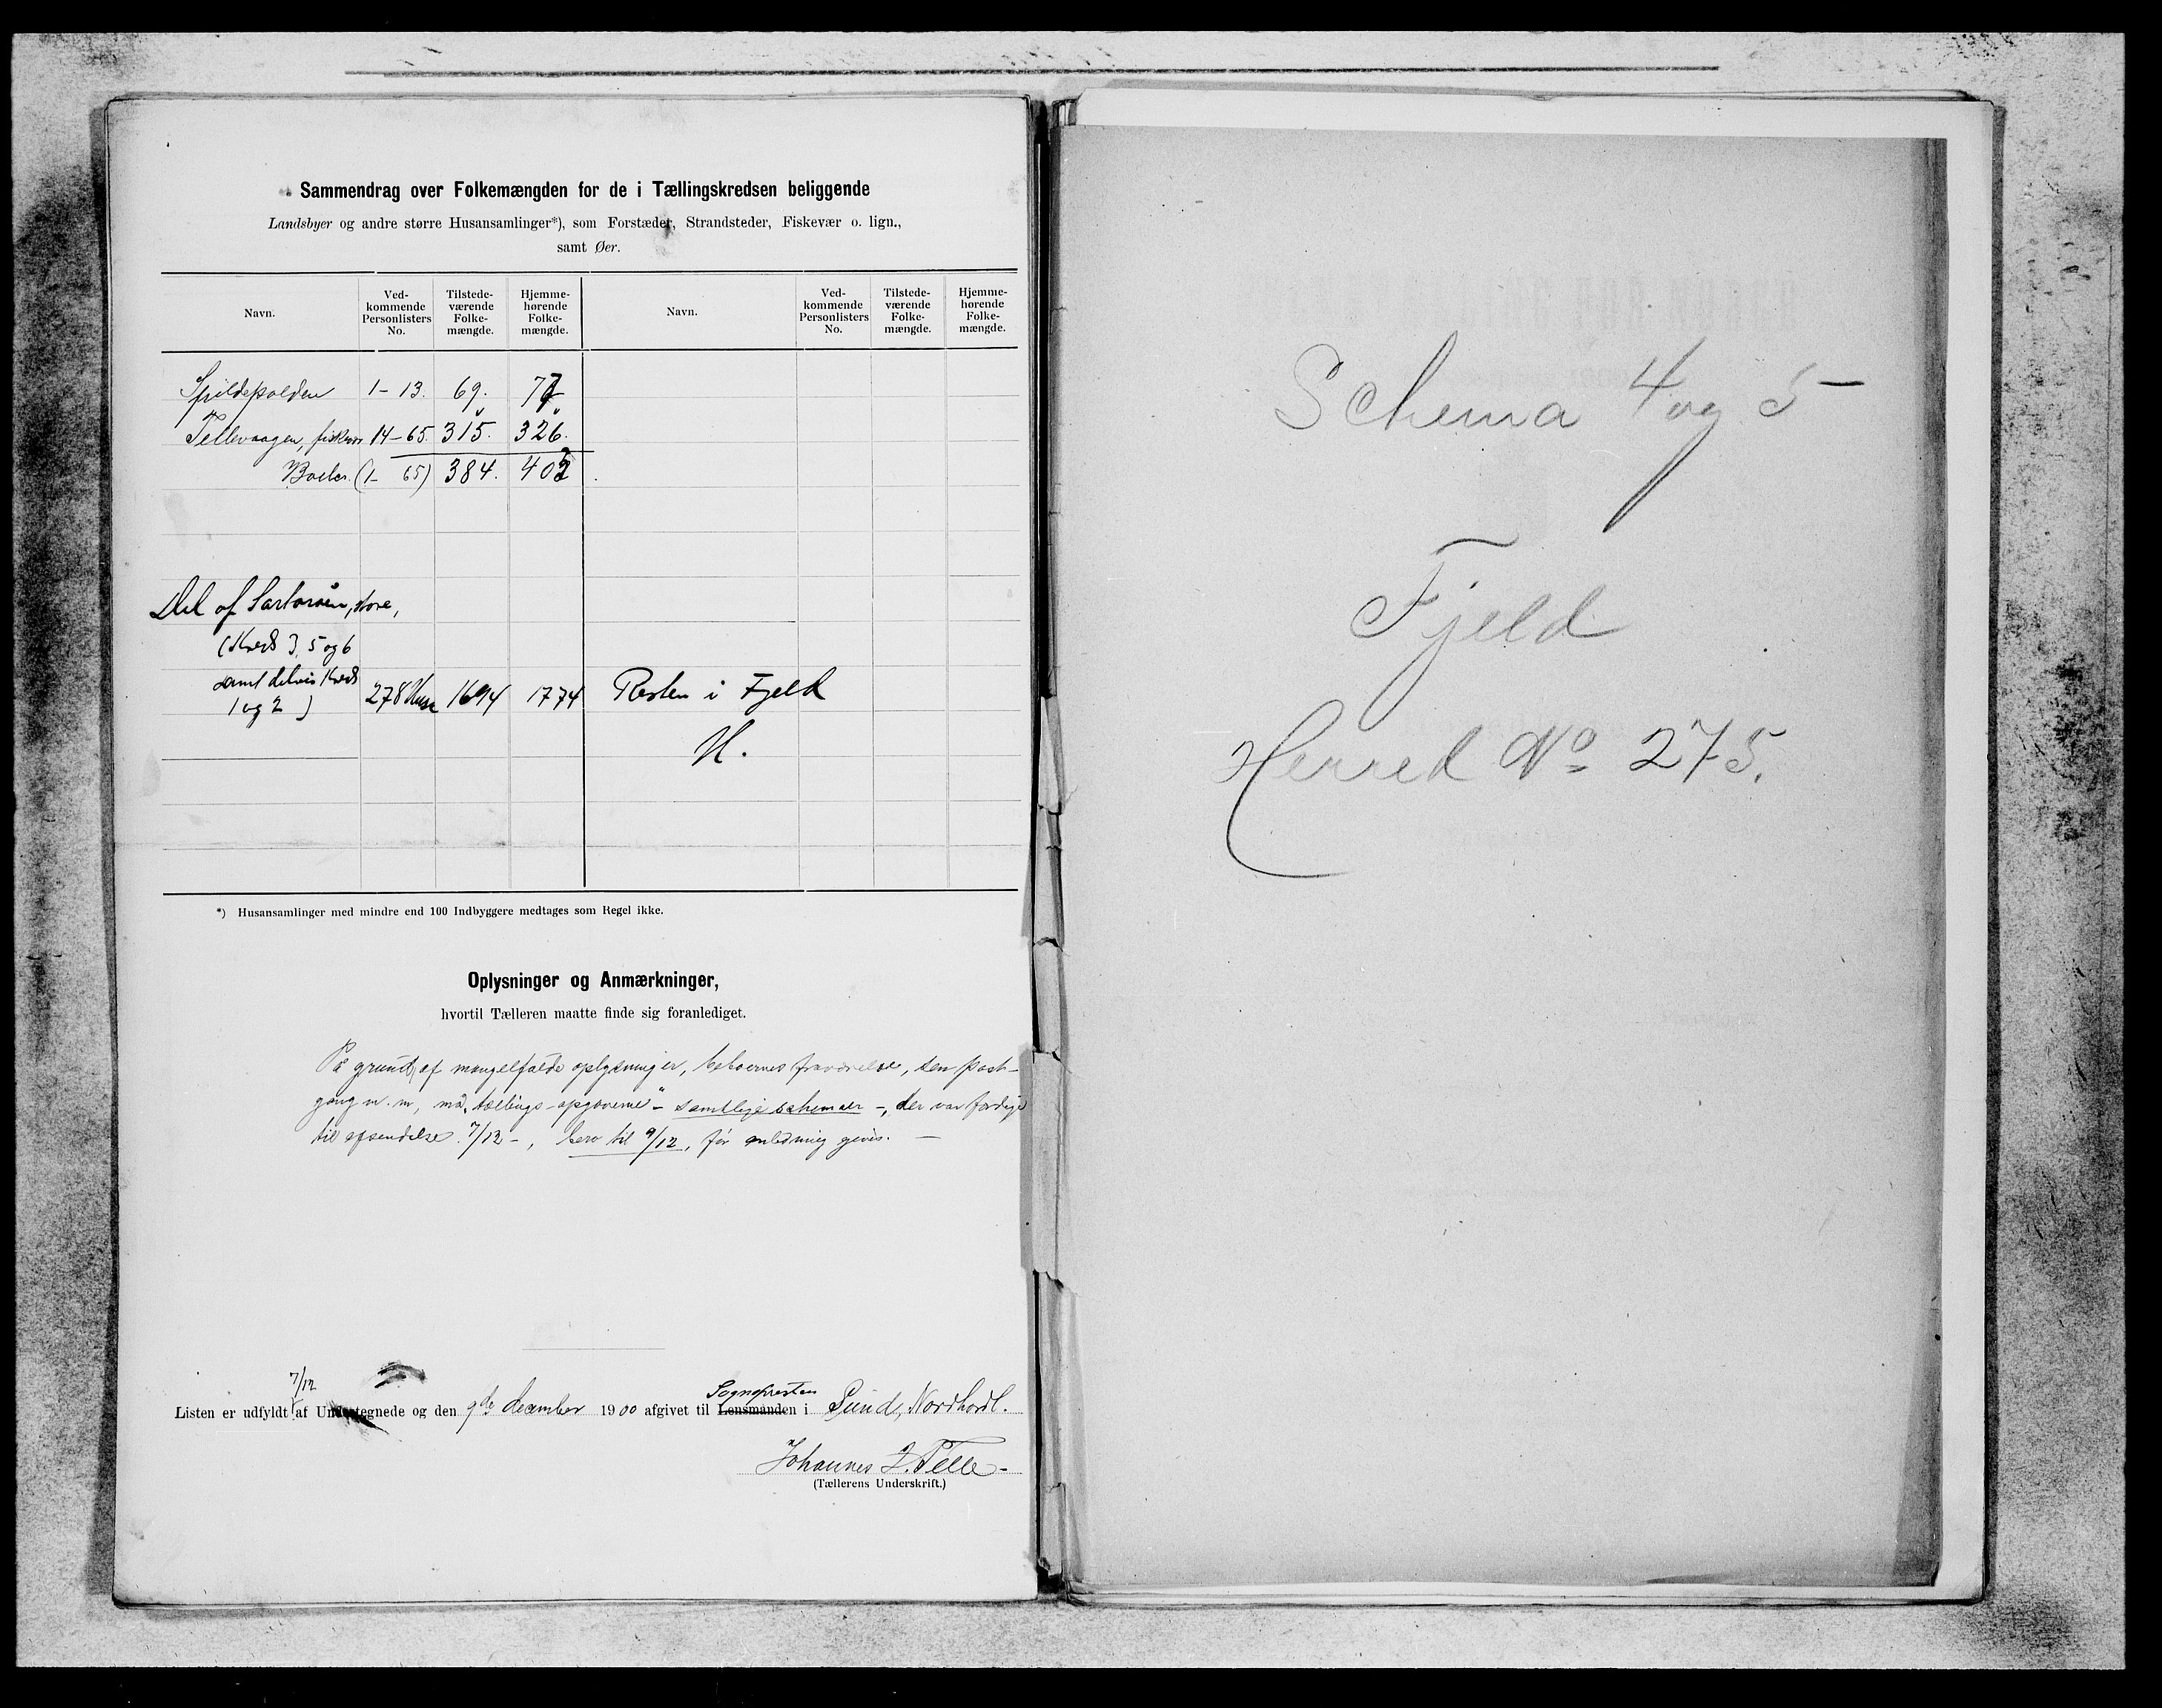 Sammendrag over Folkemængden for de i Tællingskredsen beliggende
Landsbyer og andre større Husansamlinger*), som Forstæder, Strandsteder, Fiskevær o. lign.,
samt Øer.
Navn. Ved-kommende Personlisters No. Tilstede-værende Folke-mængde. Hjemme-hørende Folke-mængde. Navn. Ved-kommende Personlisters No. Tilstede-værende Folke-mængde. Hjemme-hørende Folke-mængde.
Spildepolden 1-13. 69. 77
Tellevaagen, 14-65. 315. 326.
(1- 65) 384. 403
Del af Sartorøen, store,
(Kreds 3, 5 og 6
samt delvis Kreds
1 og 2) 278 Huse 1694 1774 Resten i Fjeld
H.
*) Husansamlinger med mindre end 100 Indbyggere medtages som Regel ikke.
Oplysninger og Anmærkninger,
hvortil Tælleren maatte finde sig foranlediget.
På grund af mangelfulde oplysninger, beboernes fraværelse, sen post-
gang m. m, må „tællings-opgaverne“ - samtlige schemaer -, der var færdige
til afsendelse 7/12 -, bero til 9/12, før anledning gives. —
7/12 Sognepresten
Listen er udfyldt af Undertegnede og den 9de december 1900 afgivet til Lensmanden i Sund, Nordhordl.
Johannes J. Telle -
(Tællerens Underskrift.)
Schema 4 og 5
Fjeld
Herred No 275.